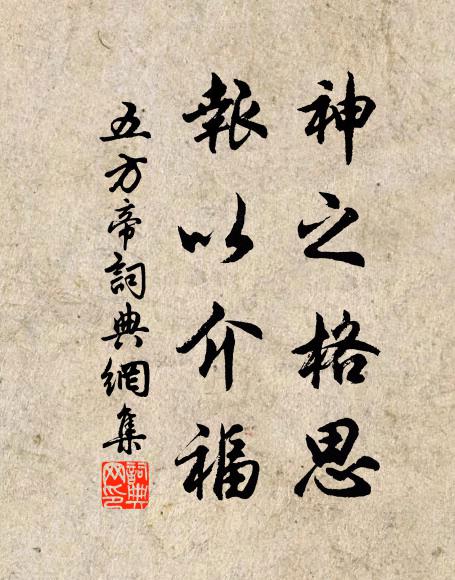 神之格思
報以介福
五方帝詞典網集
詞典網印